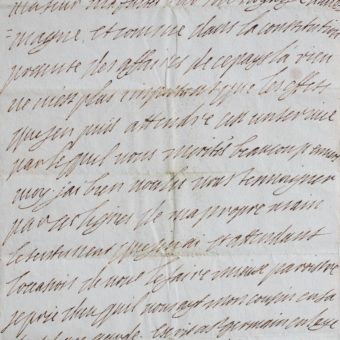 =magne, et comme dans la constitution
presente des affaires de ce pays la rien
ne m'est plus important que les effets
que j'en puis attendre
par lequel vous merités beaucoup envers
moy, j'ai bien voulu vous tesmoigner
par ces lignes de ma propre main
le sentiment que j'en ai et attendant
l'occasion de vous le faire mieux paroistre
je prie dieu qu'il vous ayt mon cousin en sa
garde. Germain en Laye